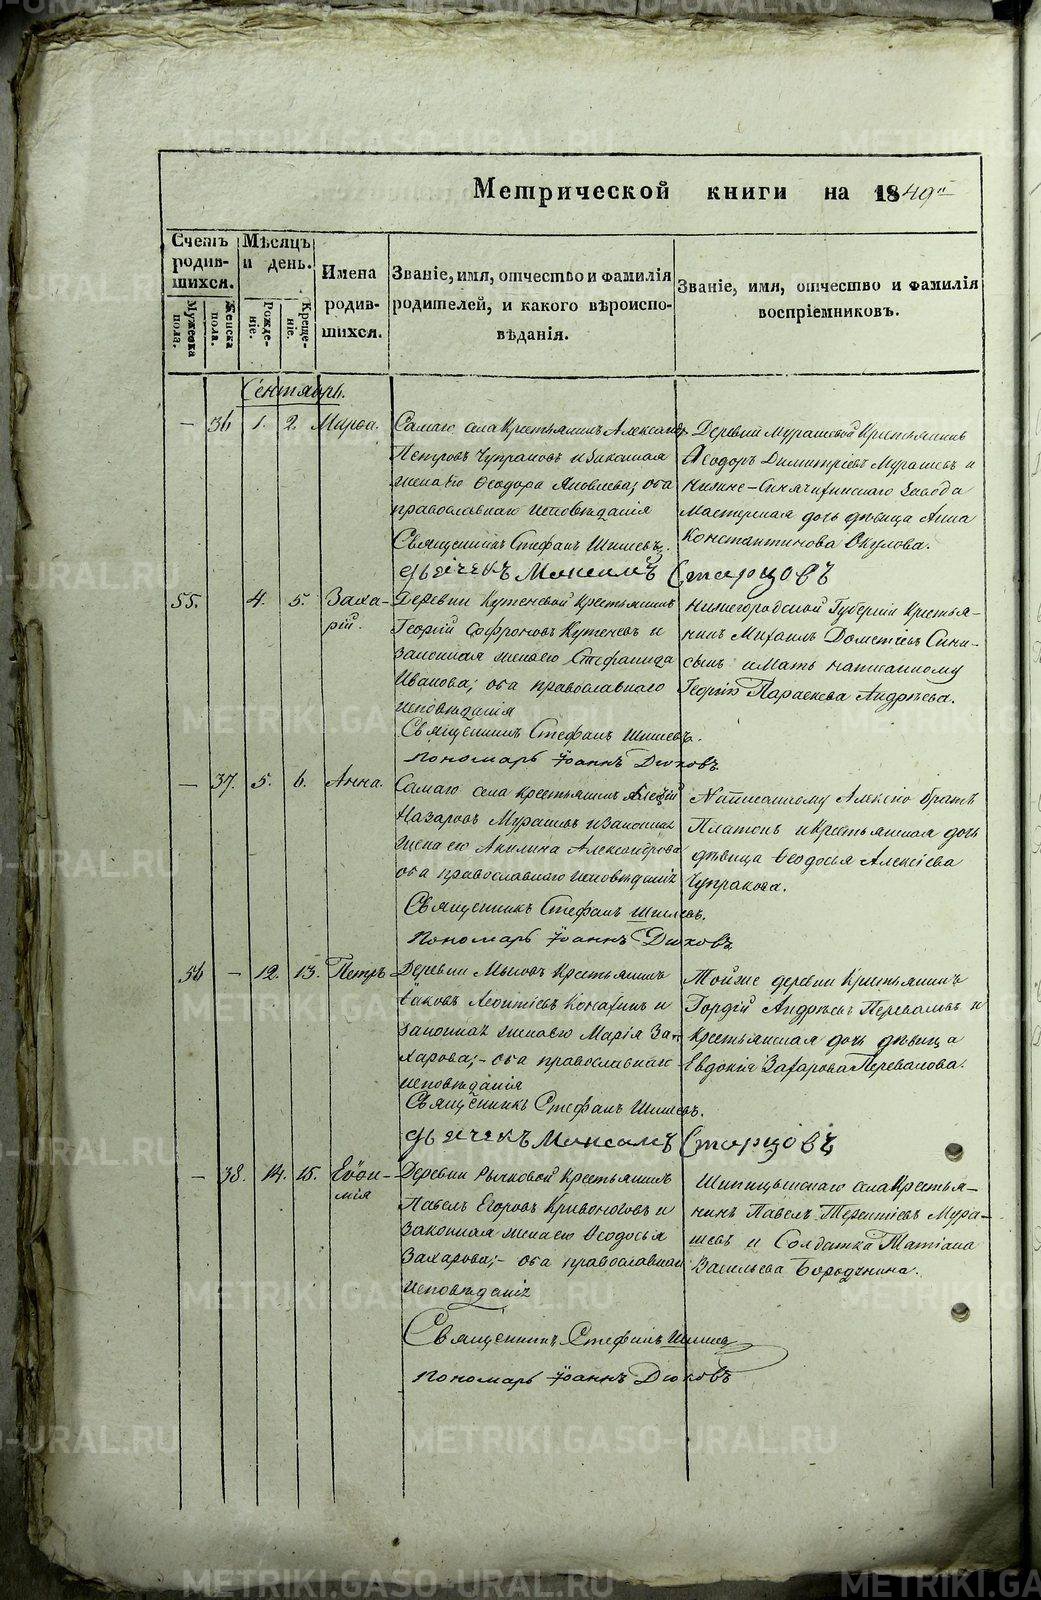 Метрической книги на 1849й
Счетъ родившихся.
Мѣсяцъ и день.
Имена родившихся.
Званіе, имя, отчество и фамилія родителей, и какого вѣроисповѣданія.
Званіе, имя, отчество и фамилія воспріемниковъ.
Мужеска пола.
Женска пола.
Рожденіе.
Крещеніе.
Сентябрь.
— 36 1. 2. Марѳа.
Самаго села Крестьянинъ Александръ
Петровъ Чупраковъ и законная
жена его Ѳеодора Яковлева; оба
православнаго исповѣданія
Священникъ Стефанъ Шишевъ.
Дьячекъ Максимъ Старцовъ
Деревни Мурашевой Крестьянинъ
Ѳеодоръ Димитріевъ Мурашевъ и
Нижне-Синячихинскаго завода
Мастерская дочь дѣвица Анна
Константинова Окулова.
55. 4. 5. Заха-
рій.
Деревни Кутеневой Крестьянинъ
Георгій Софроновъ Кутеневъ и
законная жена его Стефанида
Иванова; оба православнаго
исповѣданія
Священникъ Стефанъ Шишевъ.
Пономарь Іоаннъ Дюковъ
Нижегородской Губерніи Крестья-
нинъ Михаилъ Дометіевъ
и мать написанному
Георгію Параскева Андрѣева.
— 37. 5. 6. Анна.
Самаго села Крестьянинъ Алексій
Назаровъ Мурашевъ и законная
жена его Акилина Александрова
оба православнаго исповѣданія
Священникъ Стефанъ Шишевъ.
Пономарь Іоаннъ Дюковъ
Написанному Алексію братъ
Платонъ и Крестьянская дочь
дѣвица Ѳеодосья Алексіева
Чупракова.
56 — 12. 13. Петръ
Деревни Мысовъ Крестьянинъ
Іаковъ Леонтіевъ и
законная жена его Марія За-
харова;- оба православнаго
исповѣданія
Священникъ Стефанъ Шишевъ.
Дьячекъ Максимъ Старцовъ
Той же деревни Крестьянинъ
Гордій Андрѣевъ Переваловъ и
Крестьянская дочь дѣвица
Евдокія Захарова Перевалова.
— 38. 14. 15. Евѳи-
мія
Деревни Рычковой Крестьянинъ
Павелъ Егоровъ Кривоноговъ и
законная жена его Ѳеодосья
Захарова;- оба православнаго
исповѣданія
Священникъ Стефанъ Шишевъ
Пономарь Іоаннъ Дюковъ
Шипицынскаго села Крестья-
нинъ Павелъ Терентіевъ Мура-
шевъ и Солдатка Татіана
Васильева Бородкина.
METRIKI.GASO-URAL.RU